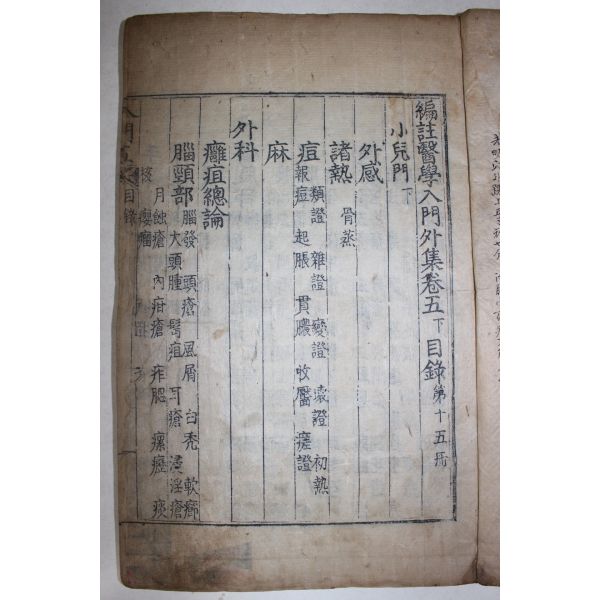 編註醫學入門外集卷五下目錄 第十五冊
小兒門下
外感
諸熱 骨蒸
痘 類證 雜證 變證 壞證 初熱
報痘 起脹 貫膿 收靨 痘證
麻
外科
癰疽總論
腦頸部 腦發 頭瘡 風屑 白禿 軟癤
大頭腫 髩疽 耳瘡 浸淫瘡
月蝕瘡 內疳瘡 痄腮 瘰癧 痰
核 癭瘤
入門 目錄